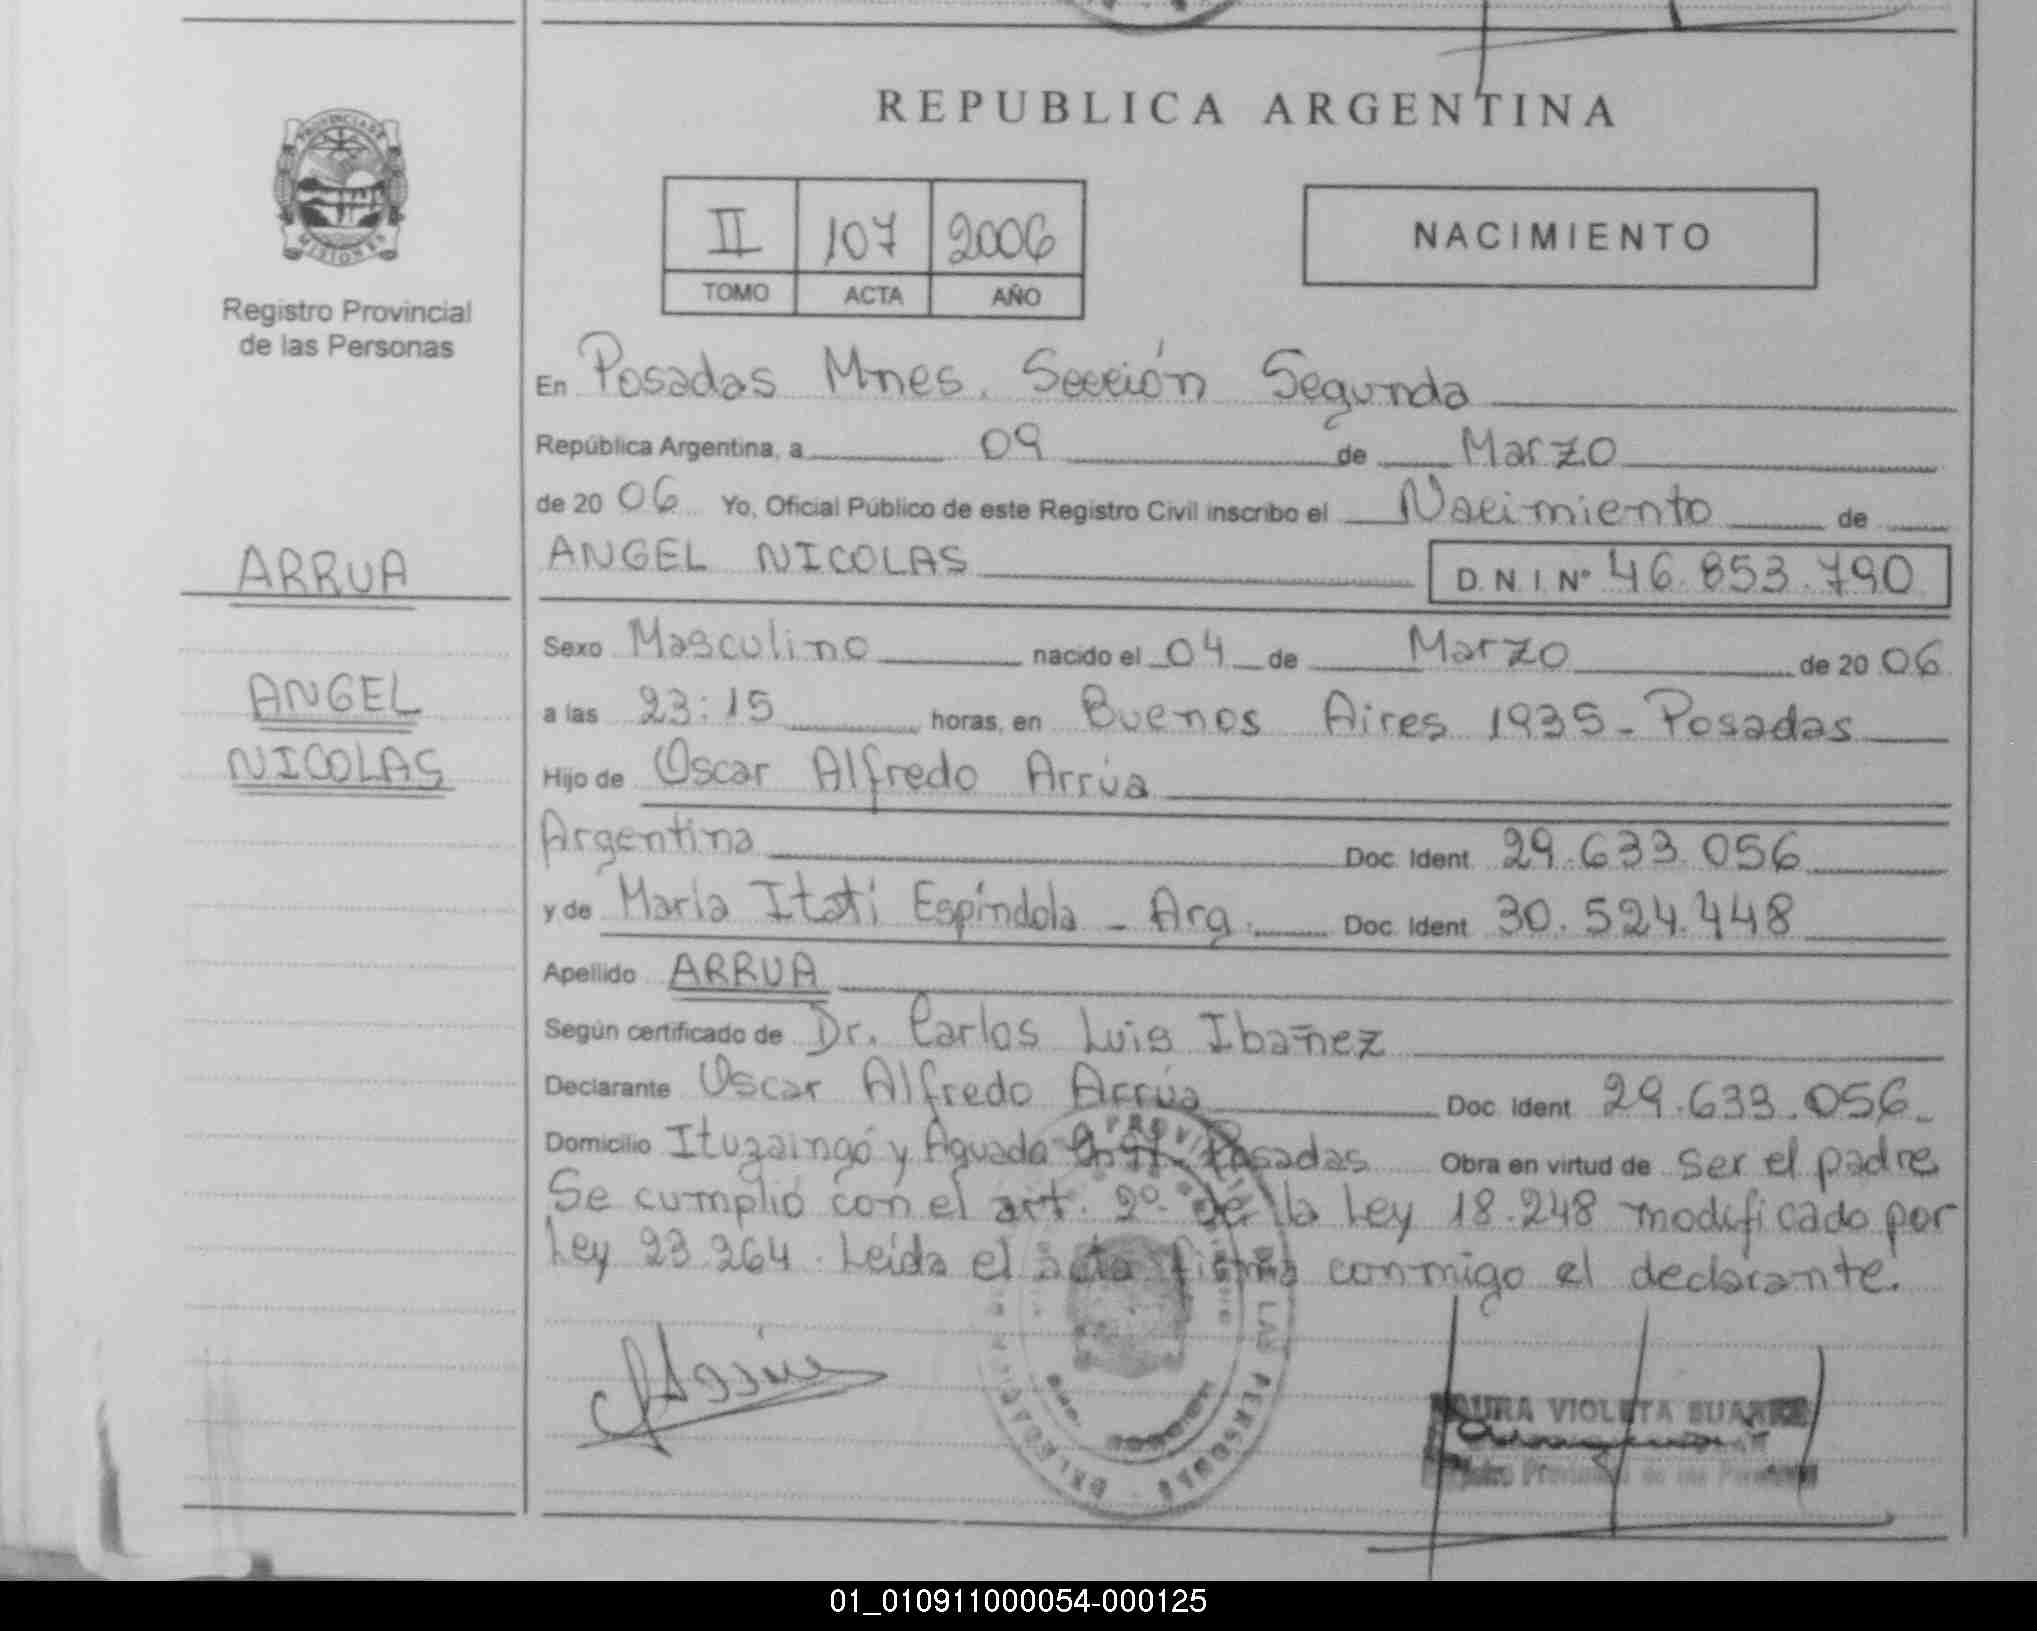 REPUBLICA ARGENTINA
PROVINCIA DE
MISIONES
Registro Provincial
de las Personas
II 107 2006
TOMO ACTA AÑO
NACIMIENTO
En Posadas Mnes. Sección Segunda
República Argentina, a 09 de Marzo
de 20 06 Yo, Oficial Público de este Registro Civil inscribo el Nacimiento de
ARRUA
ANGEL NICOLAS D.N.I. Nº 46.853.790
Sexo Masculino nacido el 04 de Marzo de 20 06
ANGEL
a las 23:15 horas, en Buenos Aires 1935 - Posadas
NICOLAS
Hijo de Oscar Alfredo Arrúa
Argentina Doc. Ident. 29.633.056
y de María Itatí Espíndola - Arg. Doc. Ident. 30.524.448
Apellido ARRUA
Según certificado de Dr. Carlos Luis Ibañez
Declarante Oscar Alfredo Arrúa Doc. Ident. 29.633.056-
Domicilio Ituzaingó y Aguado Posadas Obra en virtud de ser el padre
Se cumplió con el art. 2º de la Ley 18.248 modificado por
Ley 23.264. Leída el acta firma conmigo el declarante.
LAS PERSONAS
VIOLETA SUAREZ
01_010911000054-000125